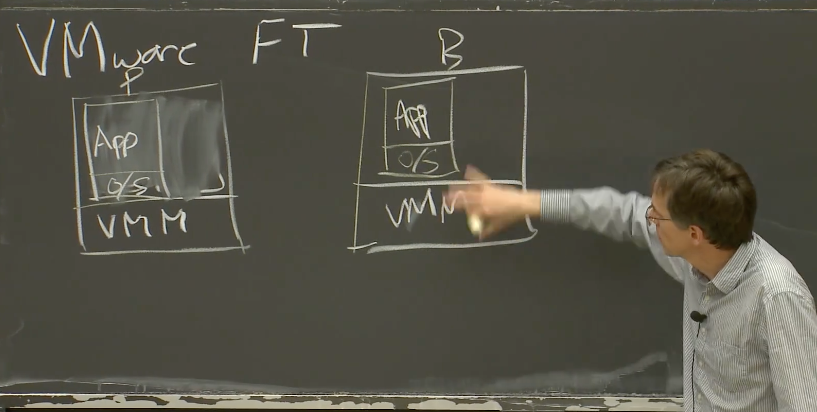 VMware FT
P
B
App
O/S
VMM
App
O/S
VMM